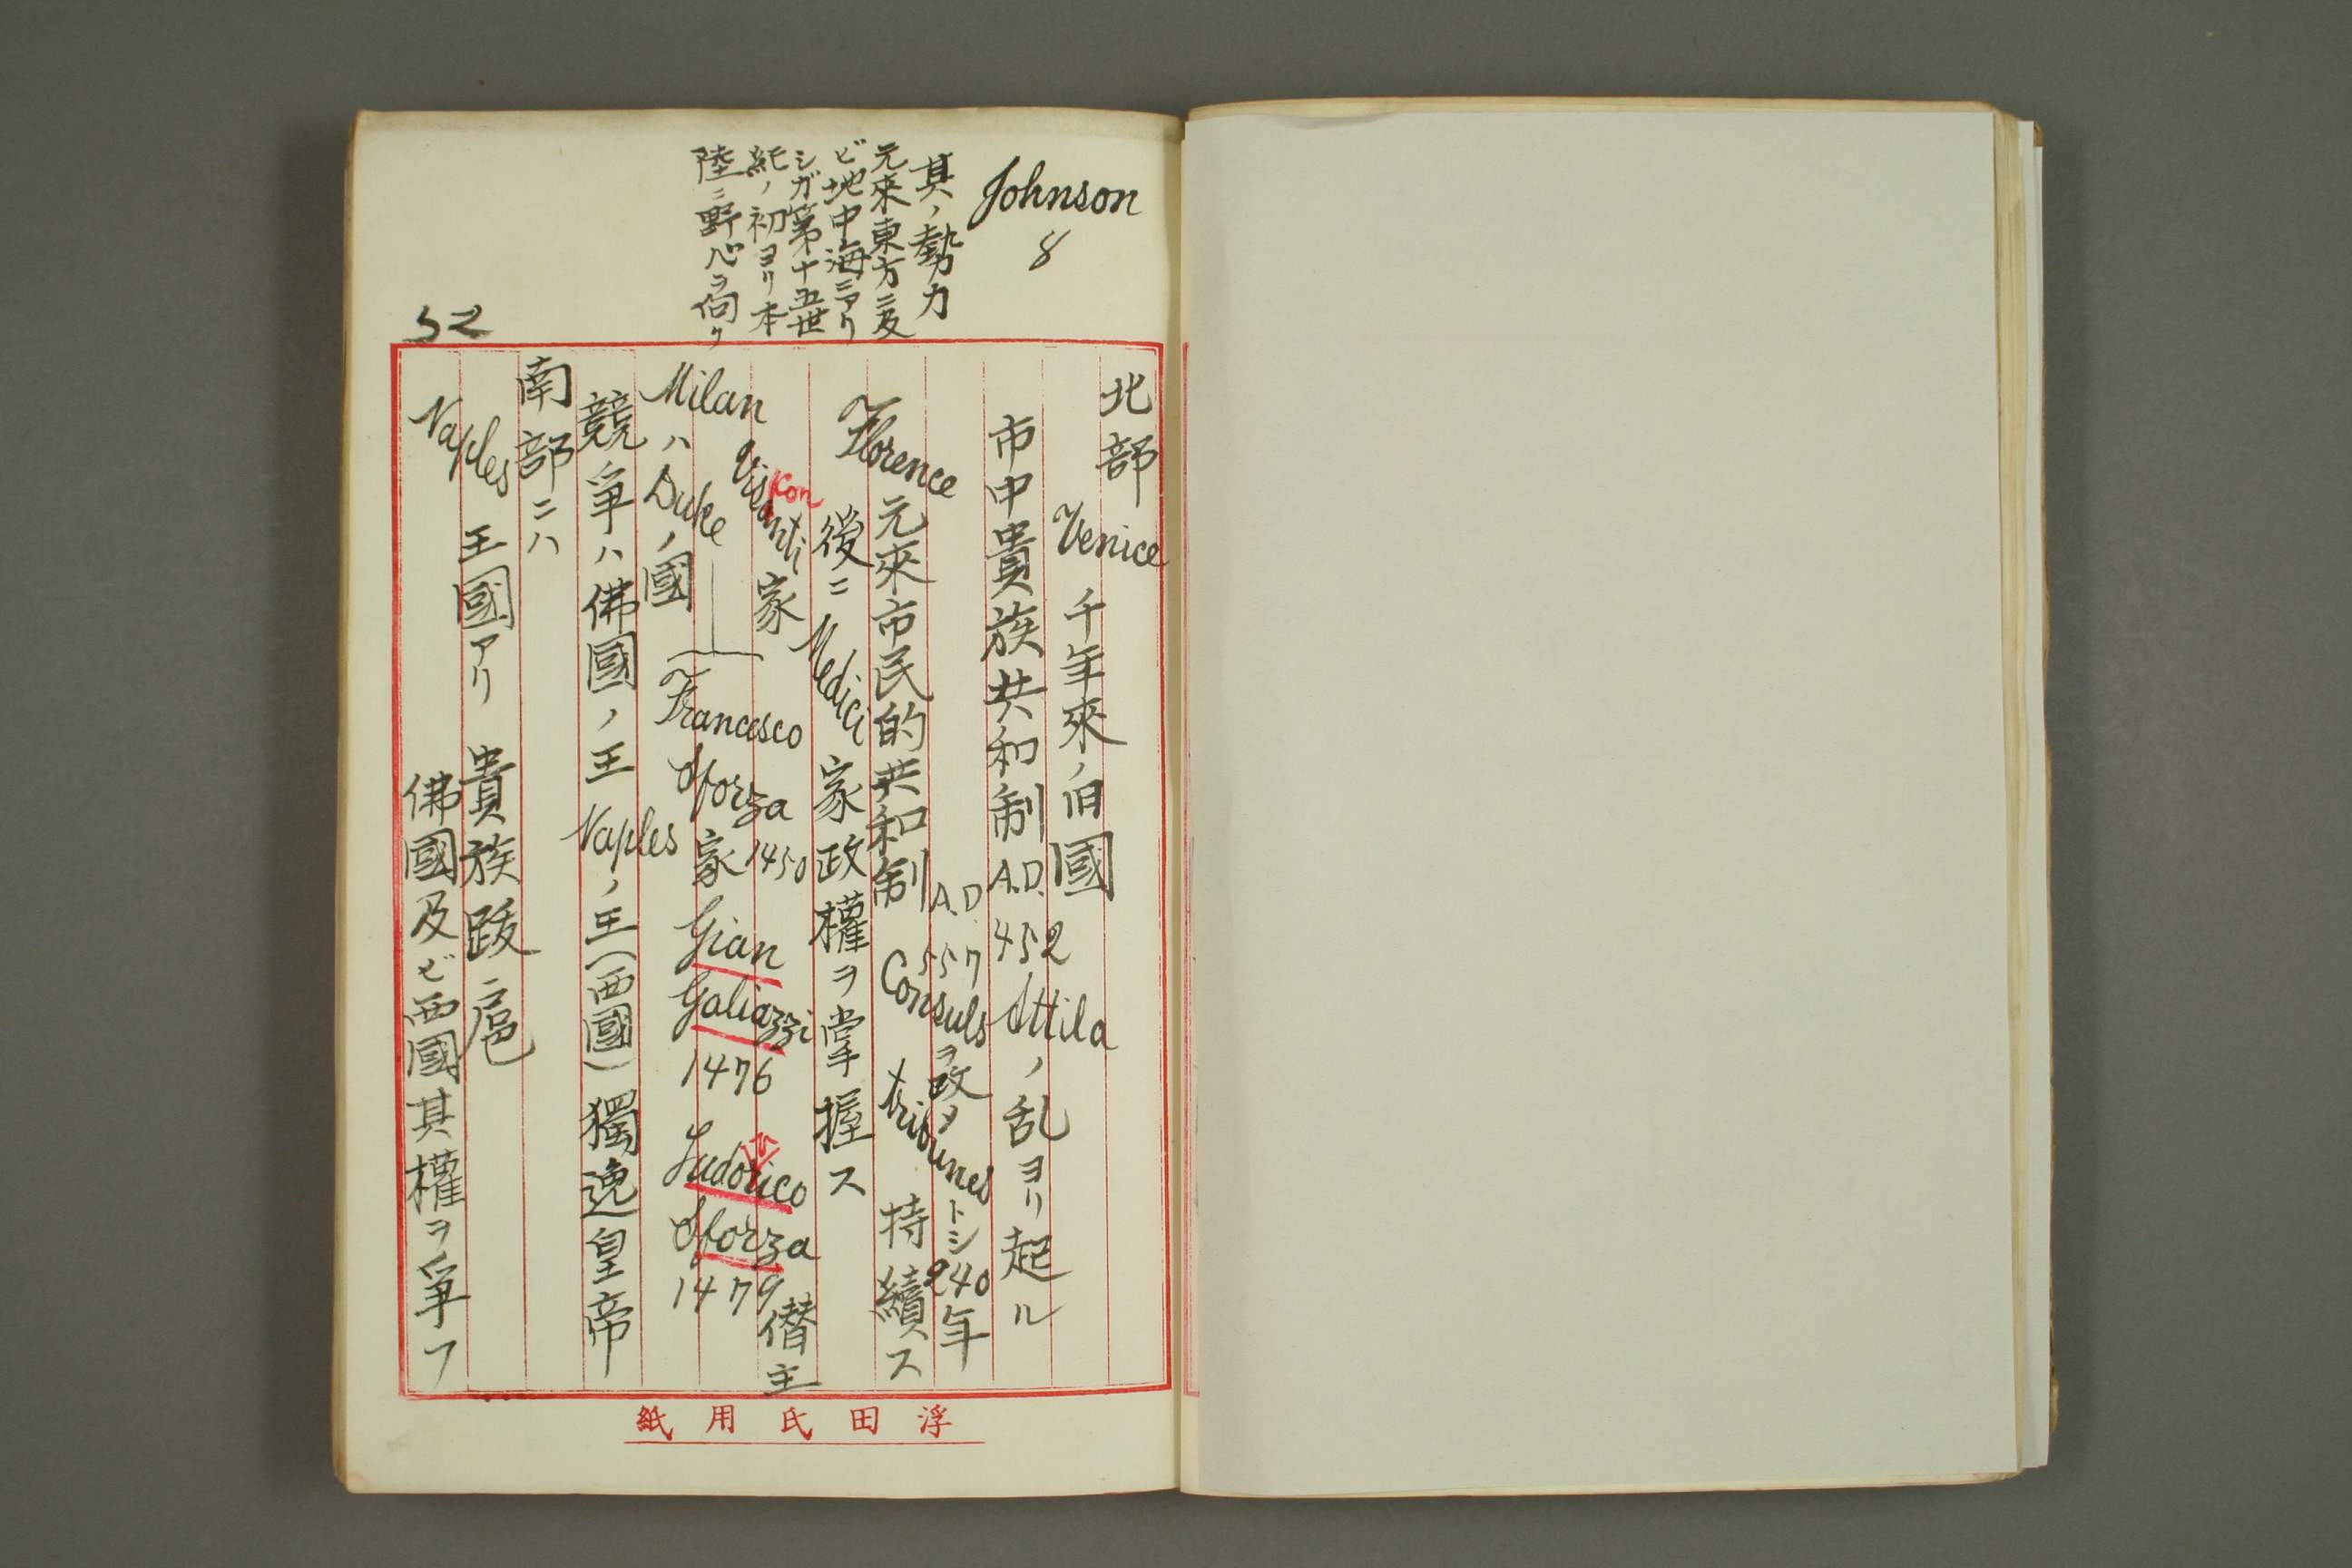 Johnson
8
其ノ勢力
元來東方ニ及
ビ地中海ニアリ
シガ第十五世
紀ノ初ヨリ本
陸ニ野心ヲ伺ク
52
北部
Venice 千年來ノ旧國
市中貴族共和制 A.D. 452 Attila ノ乱ヨリ起ル
A.D. 557 Consulsヲ改メ tribunes トシ 240年
Florence 元來市民的共和制 持續ス
後ニ Medici 家政權ヲ掌握ス
Visanti 家
kon
Milan ハ Duke ノ國
Francesco Sforza 家 1450
Gian Galiazzi 1476
Ludovico Sforza 1479 僭主
競爭ハ佛國ノ王 Naples ノ王(西國) 獨逸皇帝
南部ニハ
Naples 王國アリ 貴族跋扈
佛國及ビ西國其權ヲ爭フ
浮田氏用紙